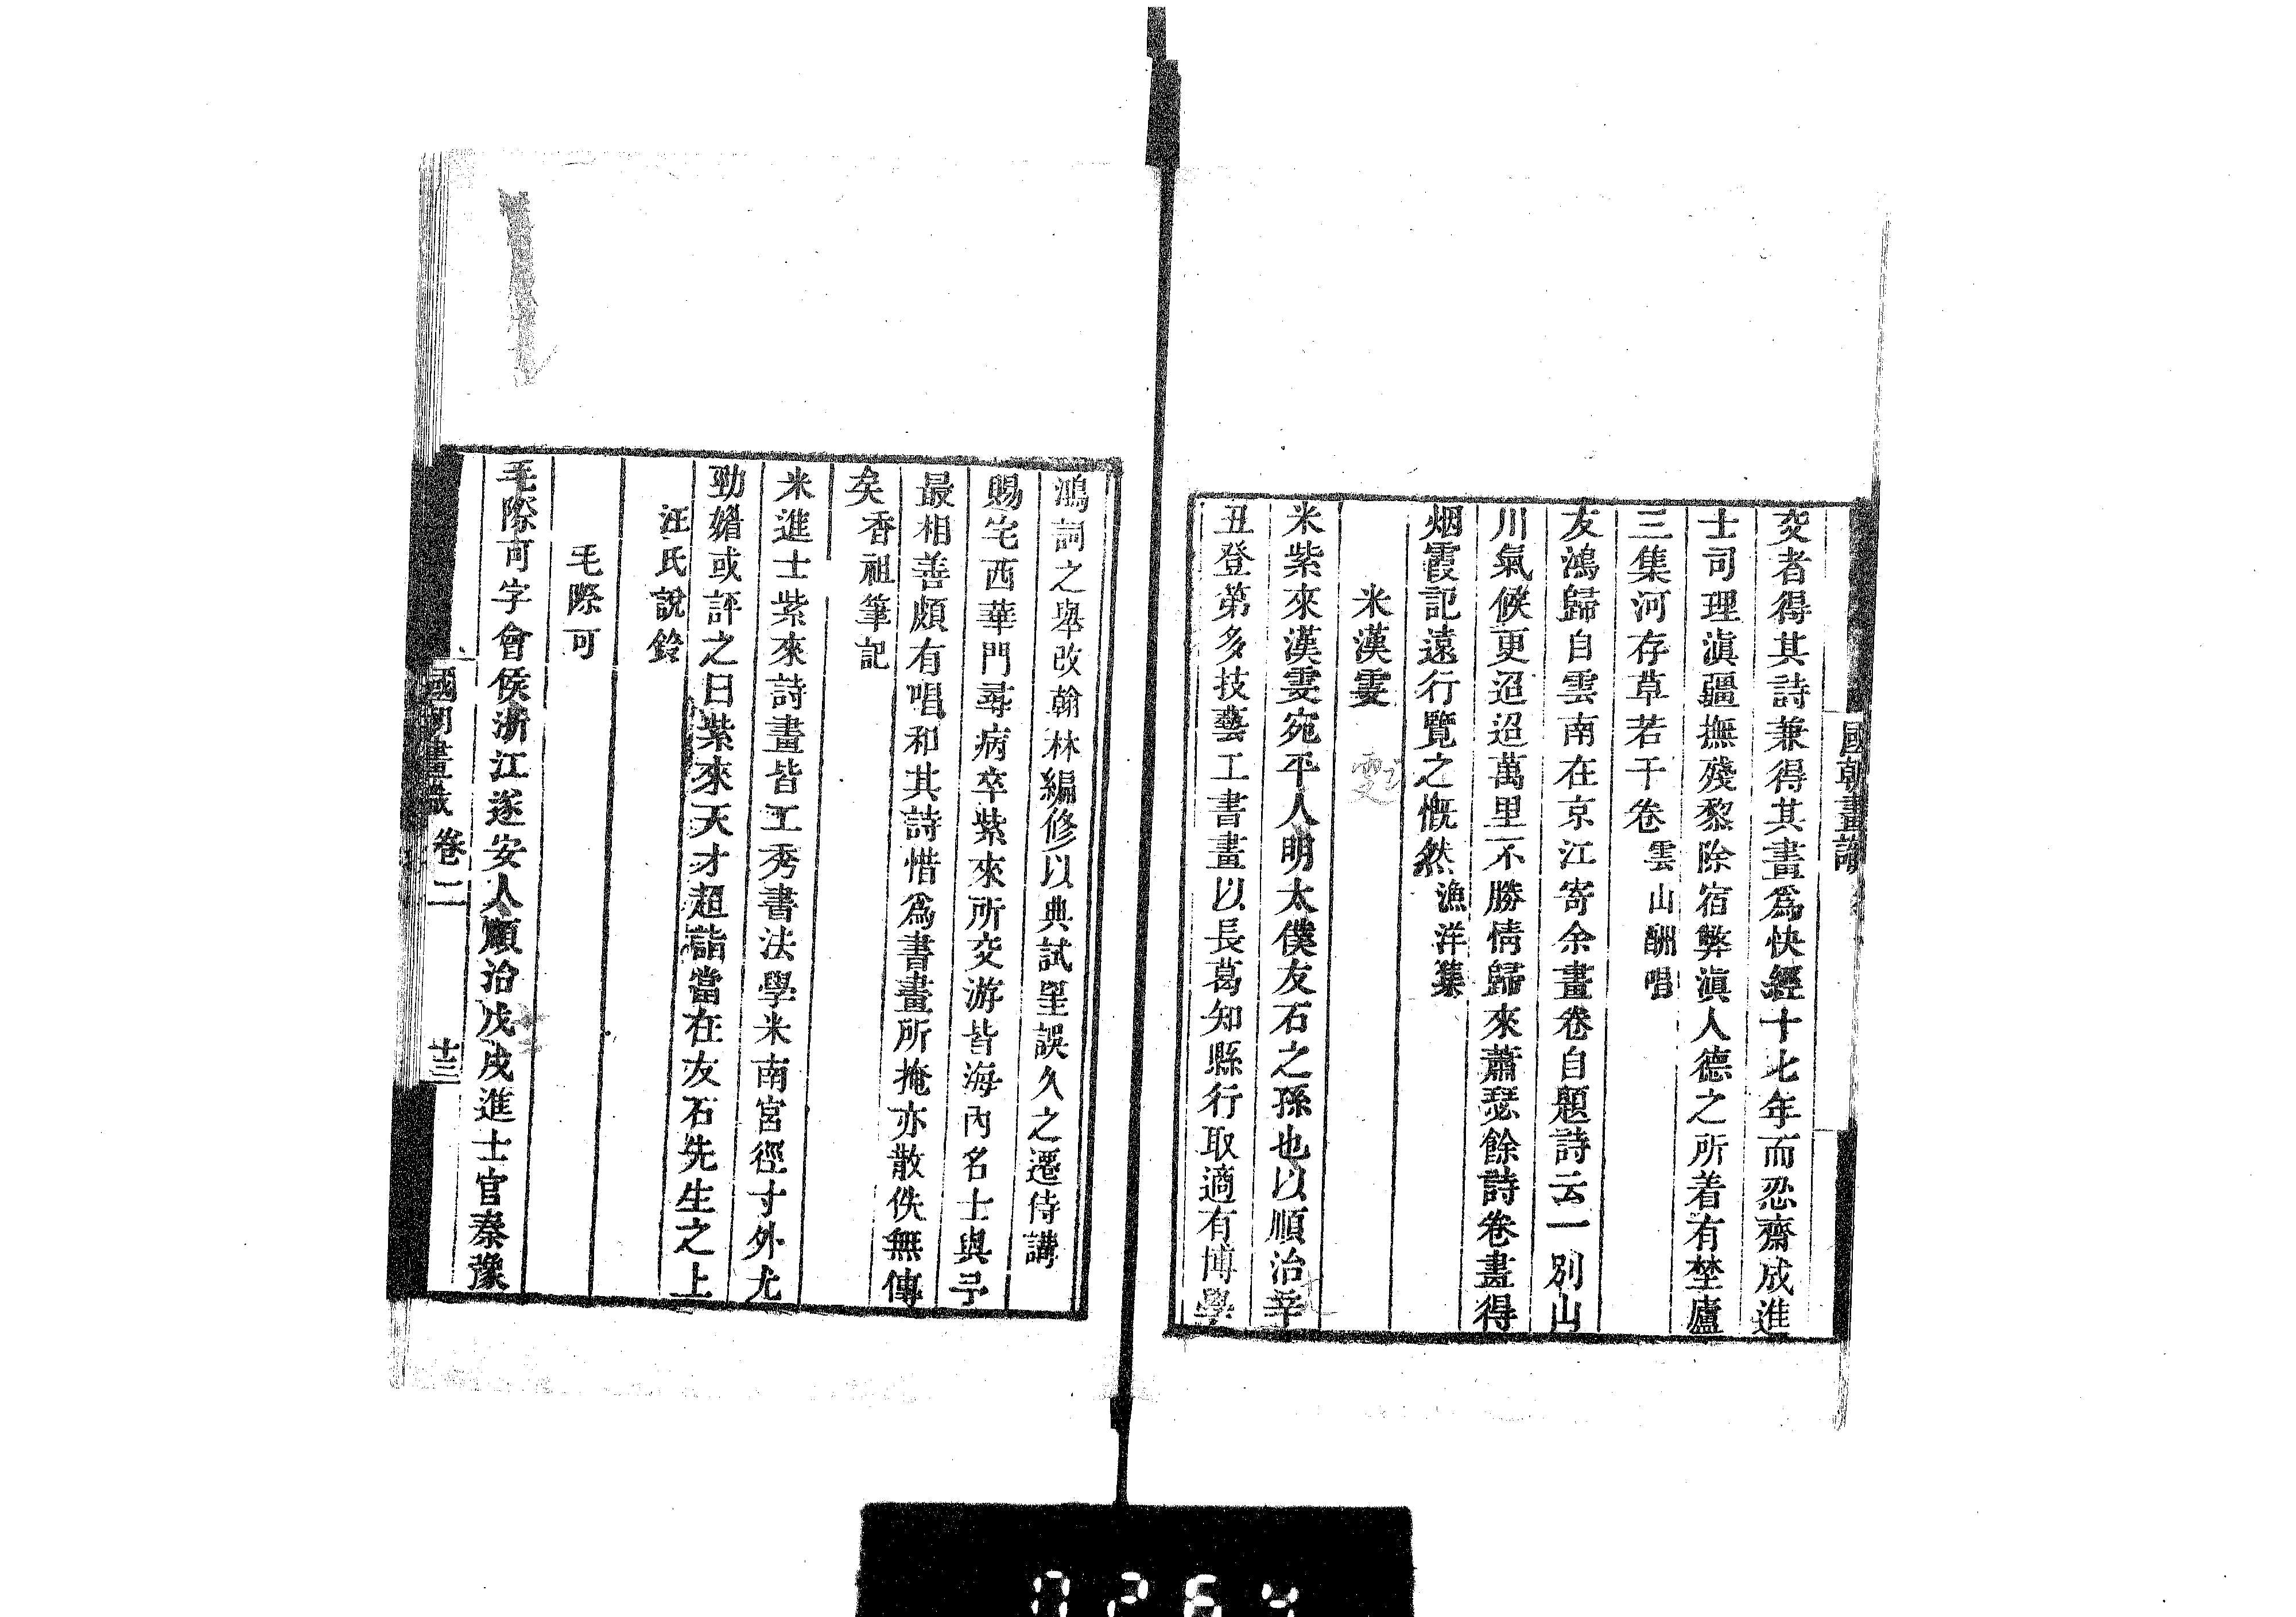 國朝畫識
交者得其詩兼得其畫爲快經十七年而忍齋成進
士司理滇疆撫殘黎除宿弊滇人德之所着有埜廬
三集河存草若干卷 雲山酬唱
友鴻歸自雲南在京江寄余畫卷自題詩云一別山
川氣候更迢迢萬里不勝情歸來蕭瑟餘詩卷畫得
烟霞記遠行覽之慨然 漁洋集
米漢雯
米紫來漢雯宛平人明太僕友石之孫也以順治辛
丑登第多技藝工書畫以長葛知縣行取適有博學
鴻詞之舉改翰林編修以典試罣誤久之遷侍講
賜宅西華門尋病卒紫來所交游皆海內名士與予
最相善頗有唱和其詩惜爲書畫所掩亦散佚無傳
矣 香祖筆記
米進士紫來詩畫皆工秀書法學米南宮徑寸外尤
勁媚或評之曰紫來天才超詣當在友石先生之上
汪氏說鈴
毛際可
毛際可字會侯浙江遂安人順治戊戌進士官秦豫
國朝畫識 卷二 十三
0264